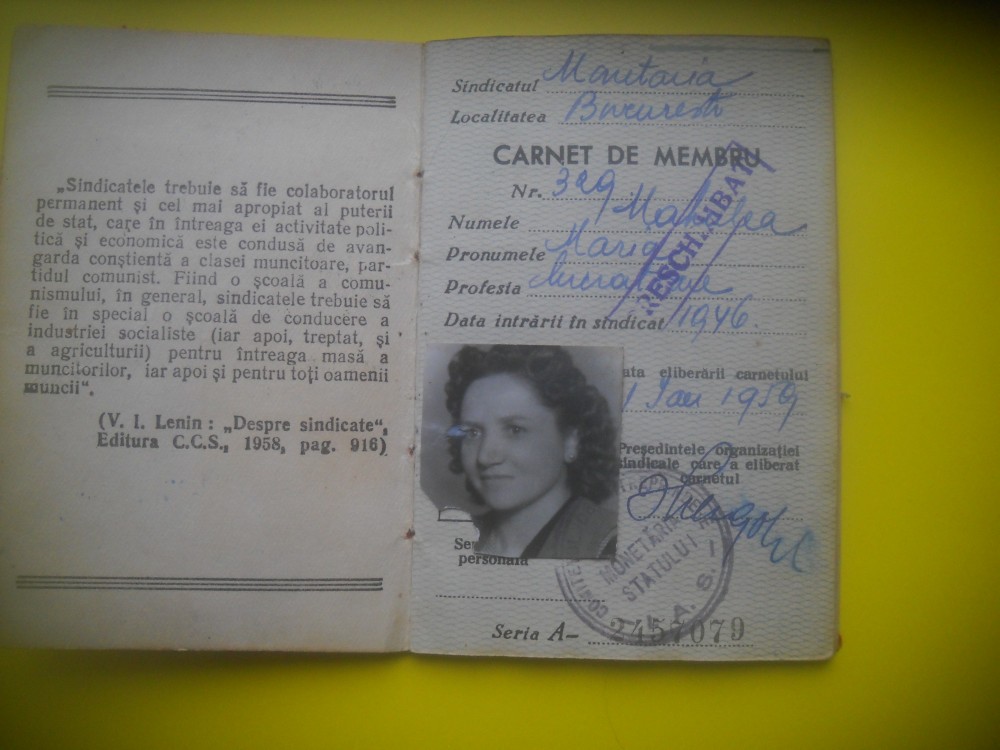 „Sindicatele trebuie să fie colaboratorul
permanent și cel mai apropiat al puterii
de stat, care în întreaga ei activitate poli-
tică și economică este condusă de avan-
garda conștientă a clasei muncitoare, par-
tidul comunist. Fiind o școală a comu-
nismului, în general, sindicatele trebuie să
fie în special o școală de conducere a
industriei socialiste (iar apoi, treptat, și
a agriculturii) pentru întreaga masă a
muncitorilor, iar apoi și pentru toți oamenii
muncii“.
(V. I. Lenin : „Despre sindicate“,
Editura C.C.S., 1958, pag. 916)
Sindicatul Monetaria
Localitatea București
CARNET DE MEMBRU
Nr. 329
Numele
Pronumele Maria
Profesia
Data intrării în sindicat 1946.
ata eliberării carnetului
1 Ian 1959
Președintele organizației
sindicale care a eliberat
carnetul
personală
MONETĂRIA
STATULUI
Seria A- 2457079